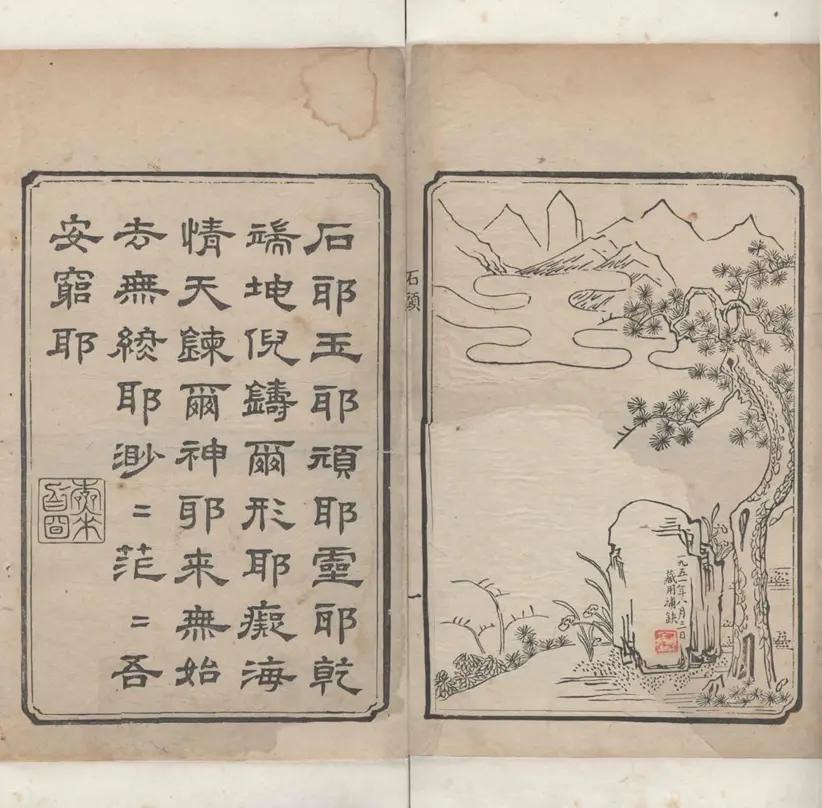 一九五一年八月
藏用補錄
石頭
一
石耶玉耶頑耶靈耶乾
端坤倪鑄爾形耶癡海
情天鍊爾神耶来無始
去無終耶渺〻茫〻吾
安窮耶